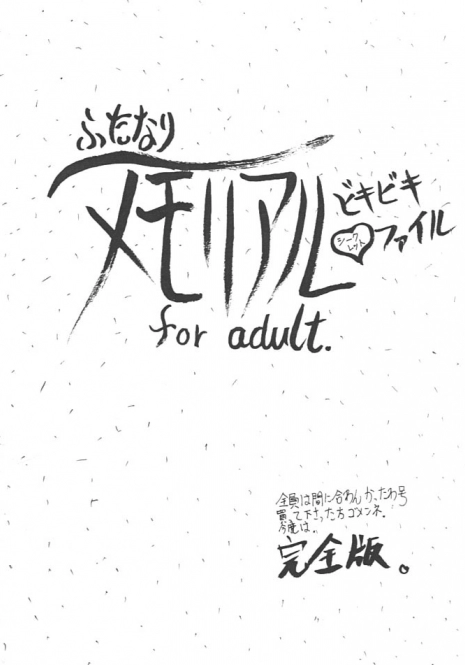 ふたなり
メモリアル
どきどき
シークレット
ファイル
for adult.
全員は間に合わんかったわ号
買て下さった方ゴメンネ。
今度は、
完全版。